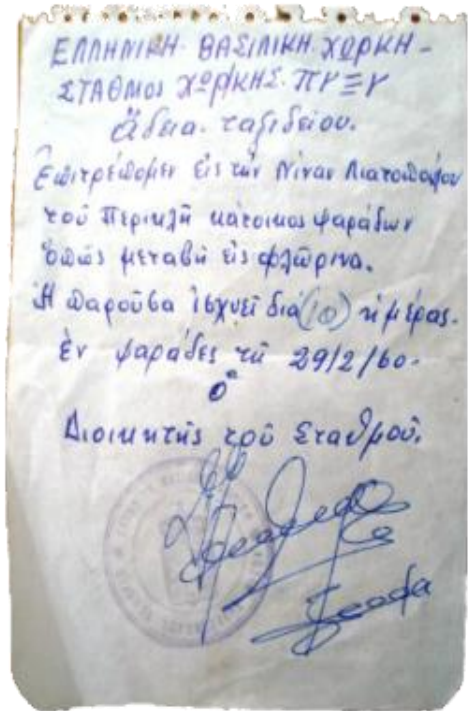 ΕΛΛΗΝΙΚΗ ΒΑΣΙΛΙΚΗ ΧΩΡ/ΚΗ -
ΣΤΑΘΜΟΣ ΧΩΡ/ΚΗΣ ΠΥΞΥ
Ἄδεια ταξιδείου.
Ἐπιτρέπομεν εἰς τὴν Νίναν
τοῦ Περικλῆ κάτοικος Ψαράδων
ὅπως μεταβῆ εἰς φλώρινα.
Ἡ παροῦσα ἰσχυεῖ διά (10) ἡμέρας.
Ἐν ψαράδες τῆ 29/2/60.
Ὁ
Διοικητής τοῦ Σταθμοῦ.